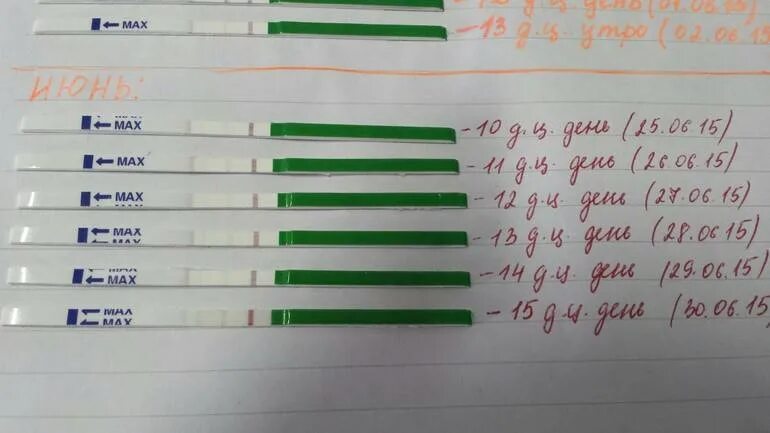 д.ц. день (01.06.15)
MAX - 13 д.ц. утро (02.06.15
ИЮНЬ:
MAX - 10 д.ц. день (25.06.15)
MAX - 11 д.ц. день (26.06.15)
MAX - 12 д.ц. день (27.06.15)
MAX - 13 д.ц. день (28.06.15)
MAX - 14 д.ц. день (29.06.15)
MAX MAX - 15 д.ц. день (30.06.15